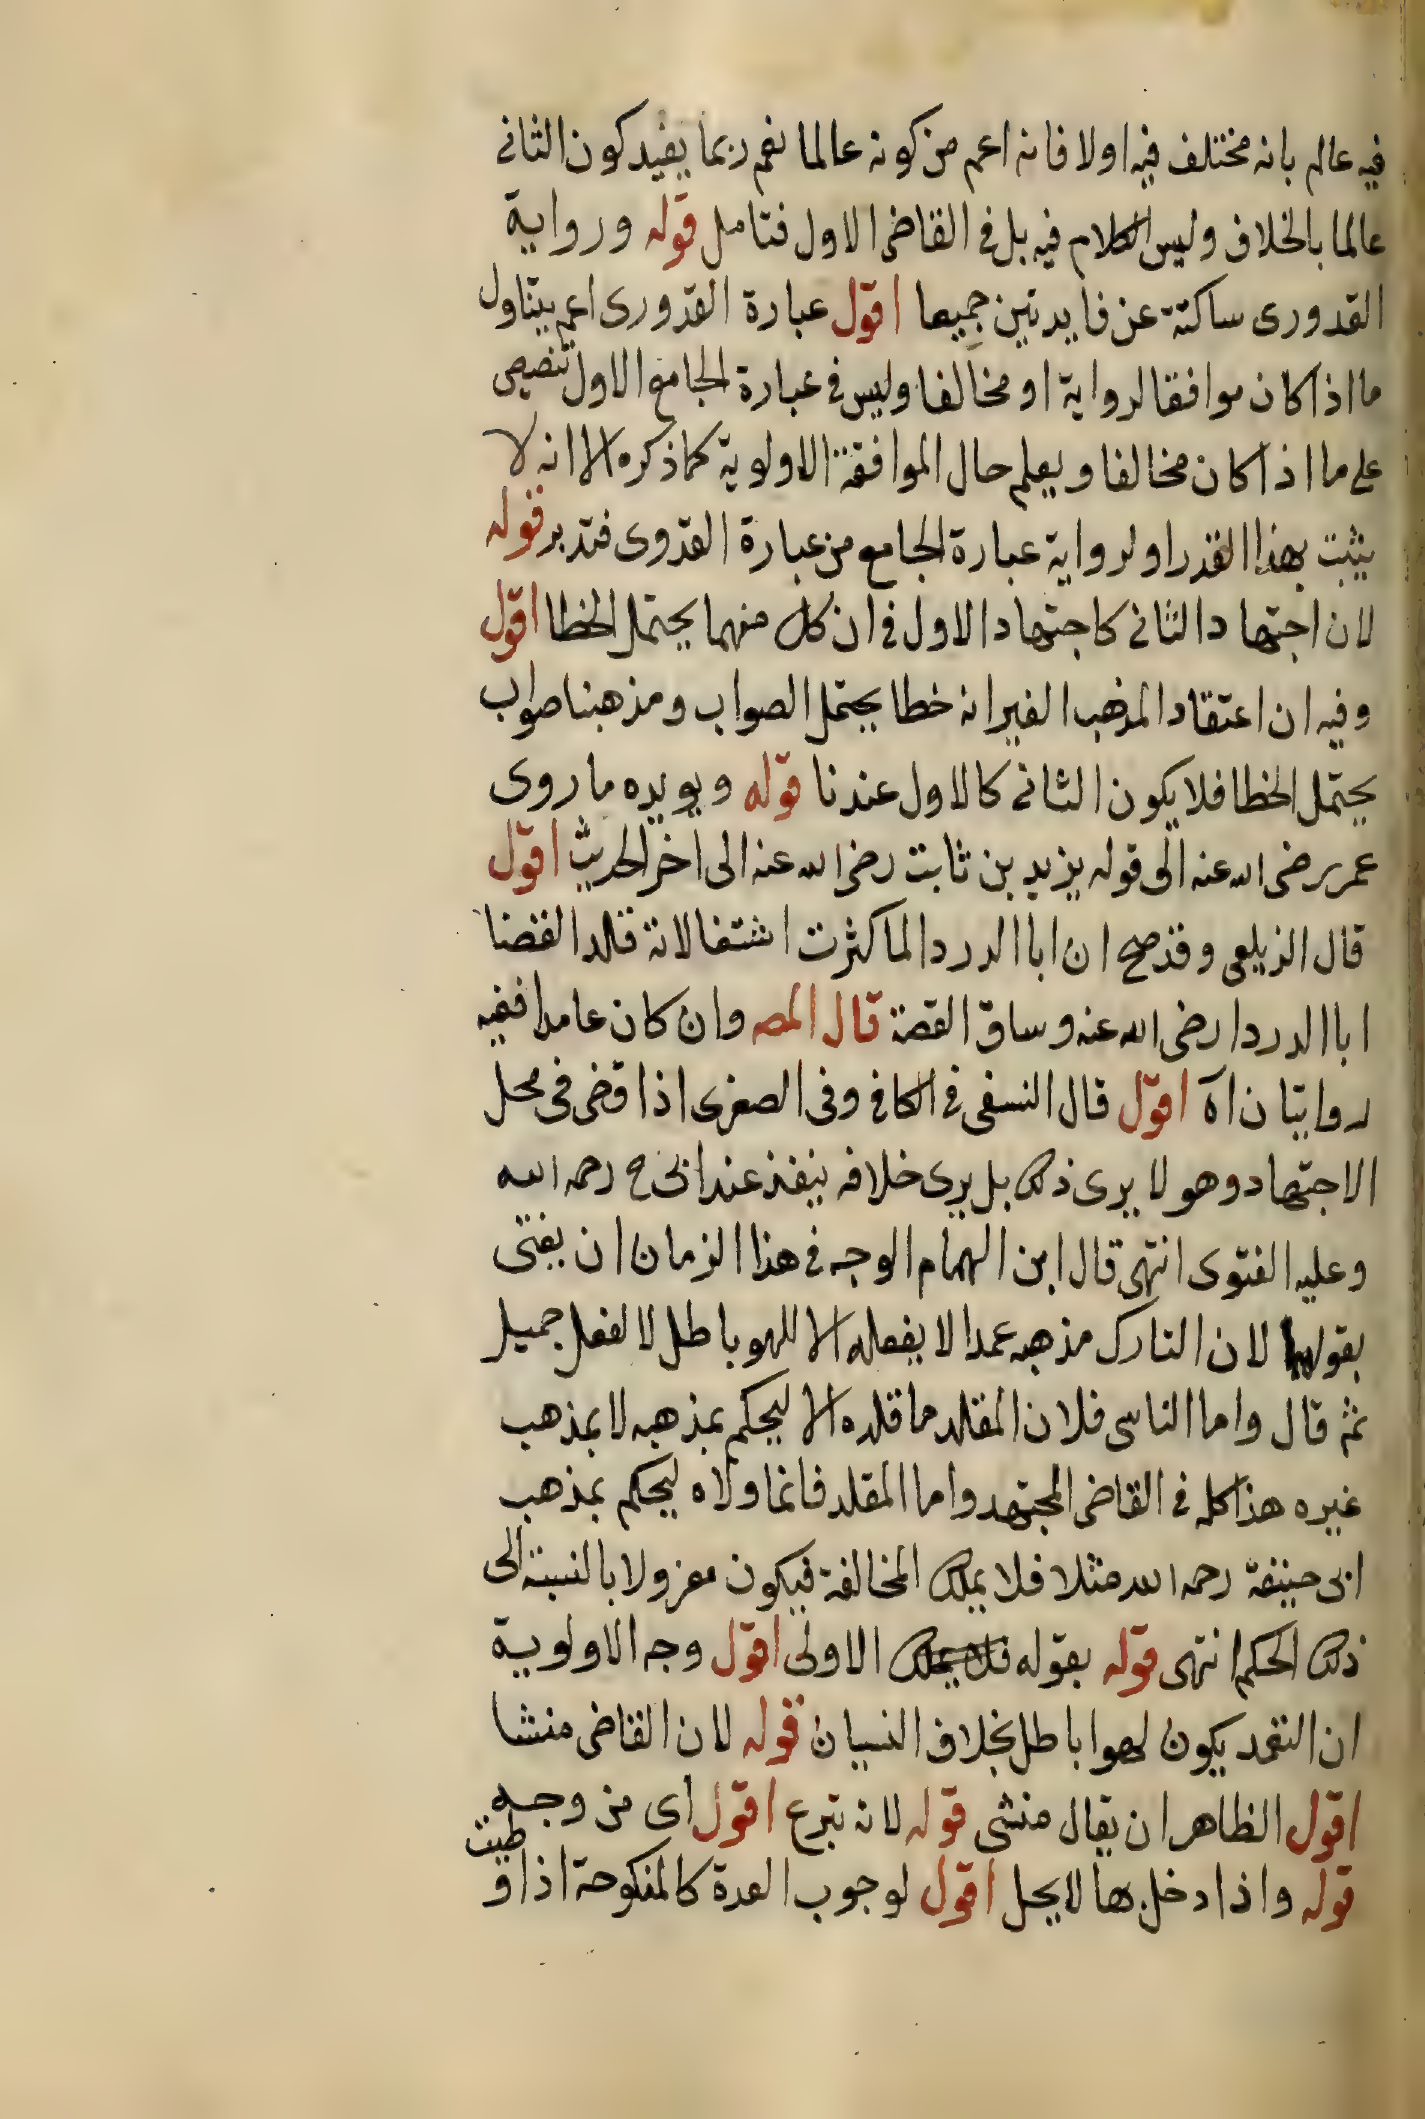 فيه عالم بانه مختلف فيه اولا فانه اعم من كونه عالما نعم ربما يفيد كون الثانى
عالما بالخلاف وليس الكلام فيه بل فى القاضى الاول فتامل قوله ورواية
القدورى ساكتة عن فايدتين جميعا اقول عبارة القدورى اعم يتناول
ما اذا كان موافقا لرواية او مخالفا وليس فى عبارة الجامع الاول تنصيص
على ما اذا كان مخالفا ويعلم حال الموافقة الاولوية كما ذكره الا انه لا
يثبت بهذا القدر اولرواية عبارة الجامع من عبارة القدوى فتدبر قوله
لان اجتهاد الثانى كاجتهاد الاول فى ان كل منهما يحتمل الخطا اقول
وفيه ان اعتقاد المذهب الغير انه خطا يحتمل الصواب ومذهبنا صواب
يحتمل الخطا فلا يكون الثانى كالاول عندنا قوله ويويده ما روى
عمر رضى الله عنه الى قوله يزيد بن ثابت رضى الله عنه الى اخر الحديث اقول
قال الزيلعى وقد صح ان ابا الدردا لما كثرت اشتغالاته قلد القضا
ابا الدردا رضى الله عنه وساق القصة قال المصـ وان كان عامدا ففيه
روايتان اه اقول قال النسفى فى الكافى وفى الصغرى اذا قضى فى محل
الاجتهاد وهو لا يرى ذلك بل يرى خلافه ينفذ عند ابى ح رحمه الله
وعليه الفتوى انتهى قال ابن الهمام الوجه فى هذا الزمان ان يفتى
بقولهما لان التارك مذهبه عمدا لا يفعله الا للهو باطل لا لفعل جميل
ثم قال واما الناسى فلان المقلد ما قلده الا ليحكم بمذهبه لا بمذهب
غيره هذا كله فى القاضى المجتهد واما المقلد فانما ولاه ليحكم بمذهب
ابى حنيفة رحمه الله مثلا فلا يملك المخالفة فيكون معزولا بالنسبة الى
ذلك الحكم انتهى قوله بقوله فلا يملك الاولى اقول وجه الاولوية
ان التعمد يكون لهوا باطل بخلاف النسيان قوله لان القاضى منشا
اقول الظاهر ان يقال منشى قوله لانه تبرع اقول اى من وجه
قوله واذا دخل بها لا يحل اقول لوجوب العدة كالمنكوحة اذا وطيت